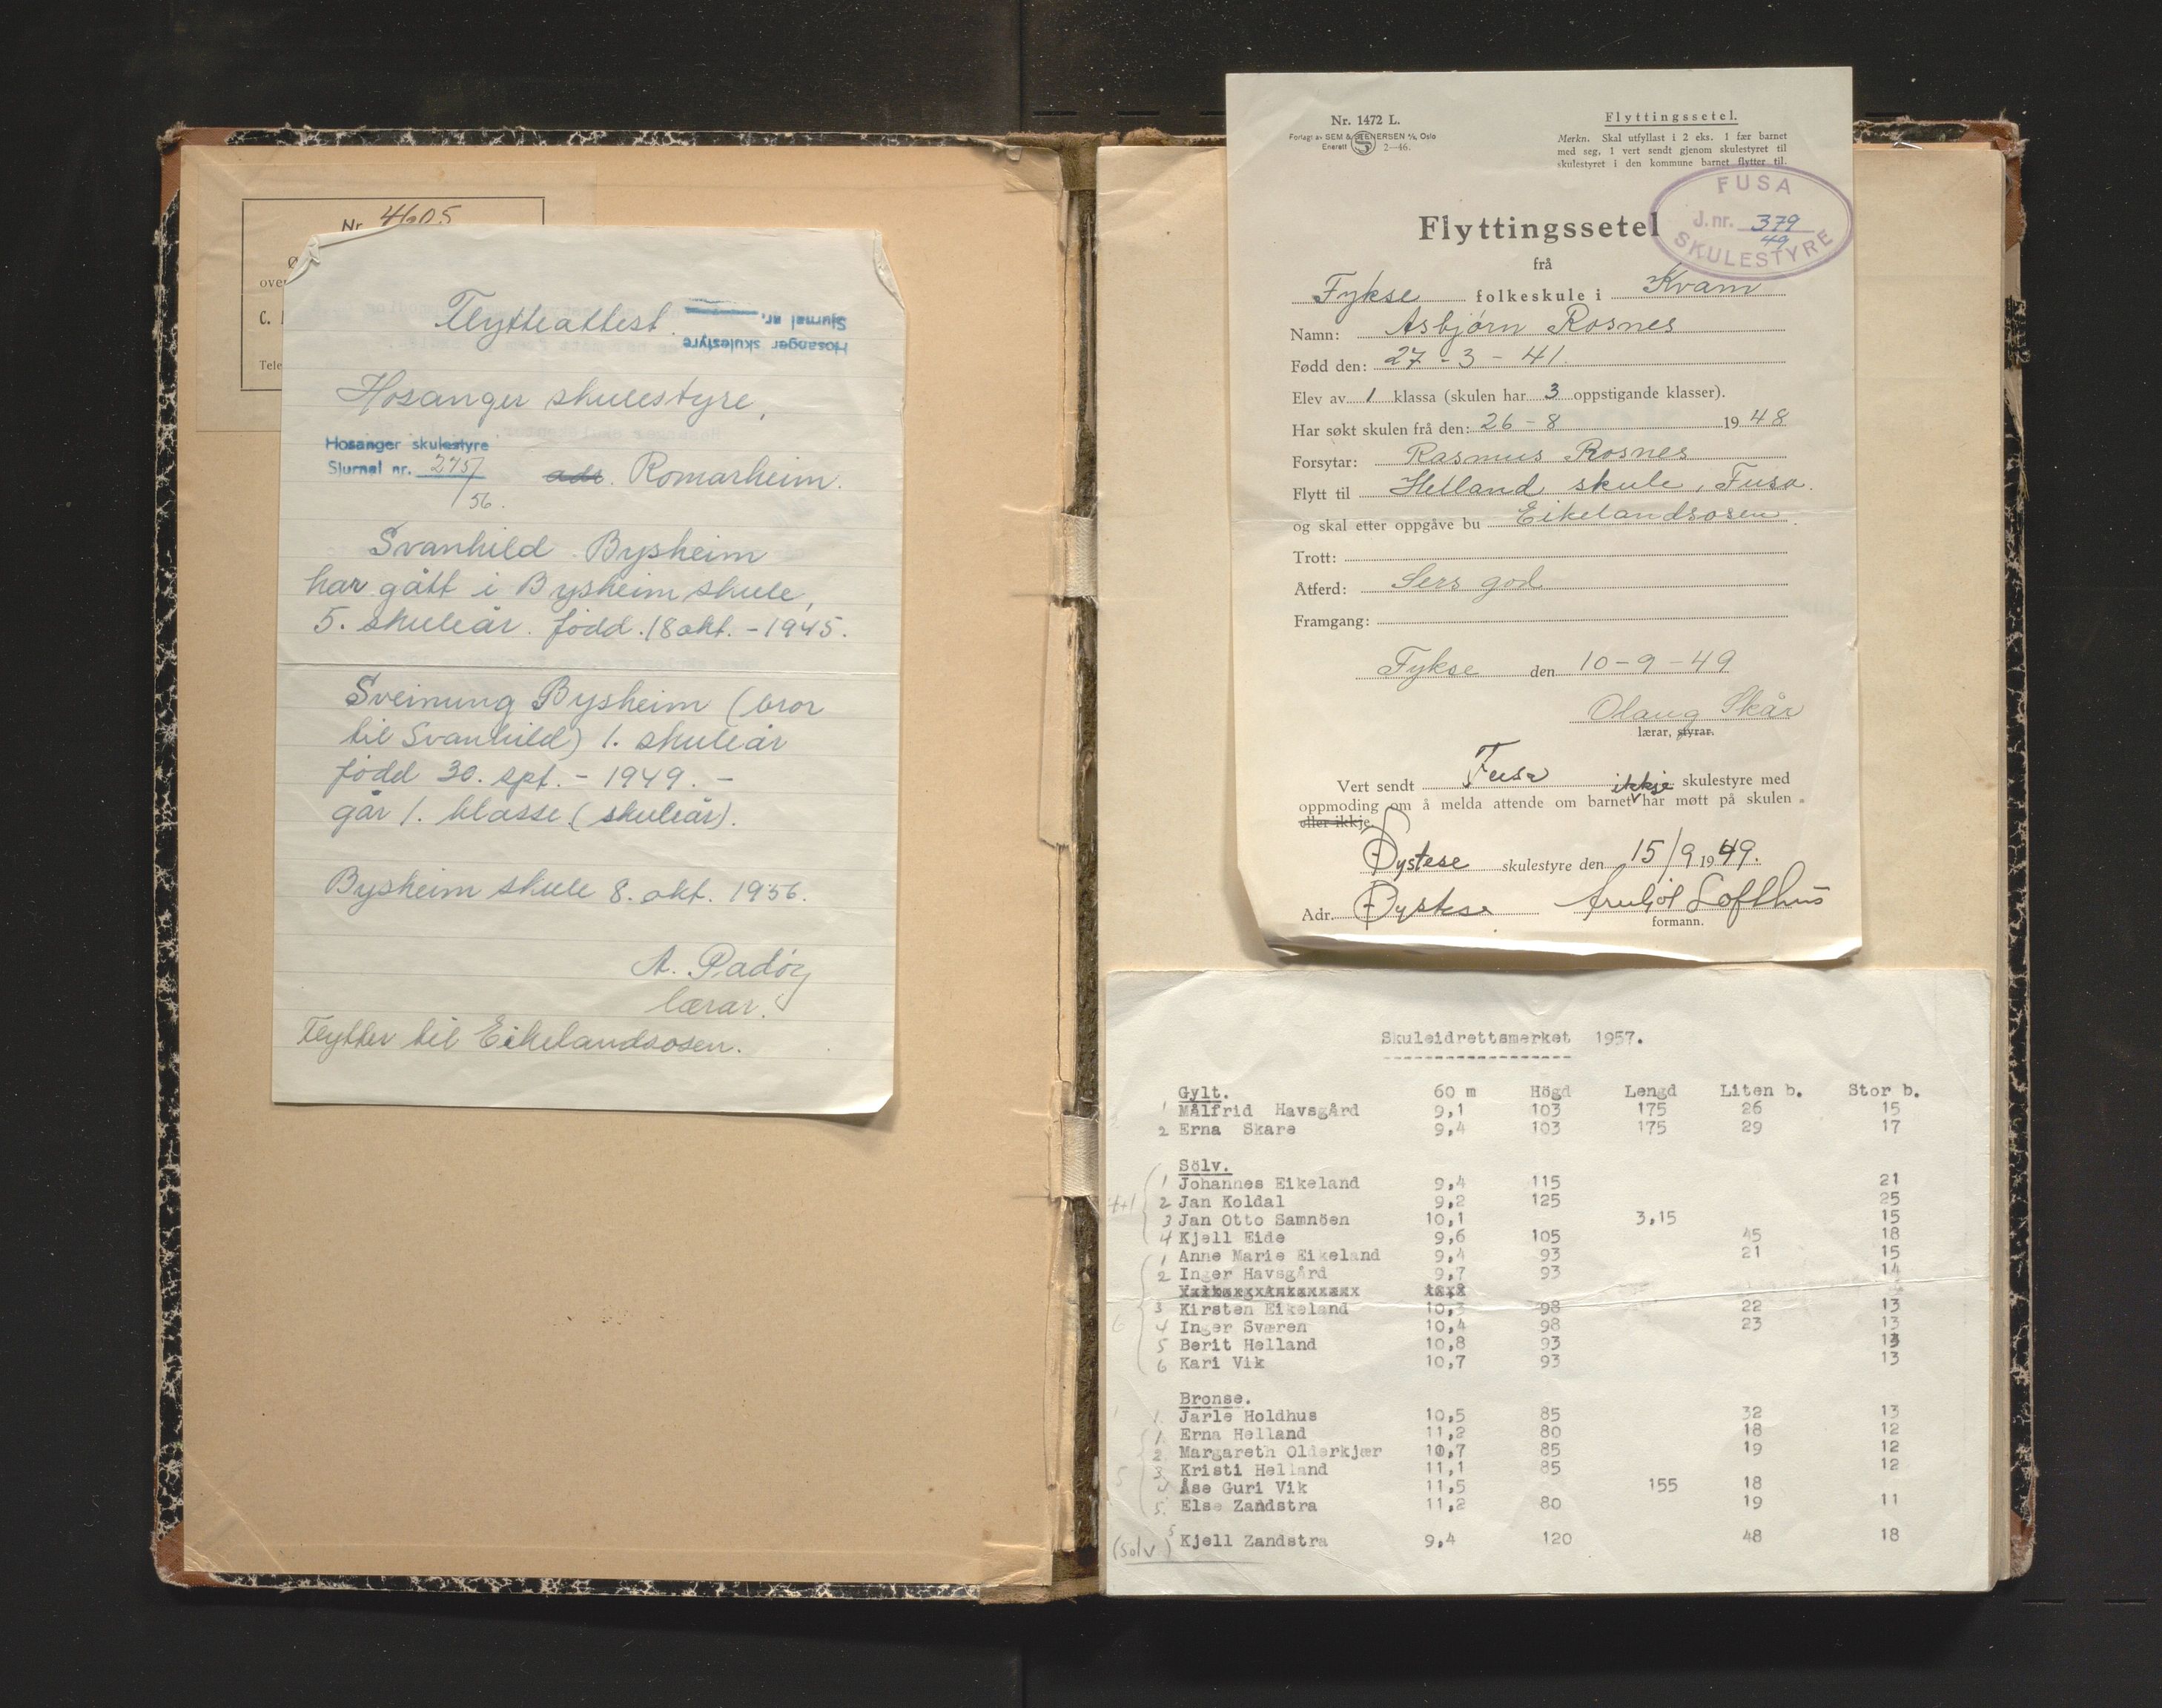 Nr. 4605
over
C.
Tele
Flytteattest.
Sjurnal nr.
Hosanger skulestyre
Hosanger skulestyre,
Hosanger skulestyre
Sjurnal nr. 275/
56.
adr. Romarheim.
Svanhild Bysheim
har gått i Bysheim skule,
5. skuleår. född. 18 okt. - 1945.
Sveinung Bysheim (bror
til Svanhild) 1. skuleår
född 30. spt. - 1949. -
går 1. klasse (skuleår).
Bysheim skule 8. okt. 1956.
A. Padöy
lærar.
Flytter til Eikelandsosen.
Nr. 1472 L.
Forlagt av SEM & STENERSEN A/S, Oslo
Enerett S 2-46.
Flyttingssetel.
Merkn. Skal utfyllast i 2 eks. 1 fær barnet
med seg, 1 vert sendt gjenom skulestyret til
skulestyret i den kommune barnet flytter til.
FUSA
J.nr. 379
49
SKULESTYRE
Flyttingssetel
frå
Fykse folkeskule i Kvam
Namn: Asbjørn Rosnes
Fødd den: 27 - 3 - 41.
Elev av 1 klassa (skulen har 3 oppstigande klasser).
Har søkt skulen frå den: 26 - 8 1948
Forsytar: Rasmus Rosnes
Flytt til Helland skule, Fusa.
og skal etter oppgåve bu Eikelandsosen.
Trott:
Åtferd: Sers god
Framgang:
Fykse den 10 - 9 - 49
Olaug Skår
lærar, styrar.
Vert sendt Fusa skulestyre med
ikkje
oppmoding om å melda attende om barnet har møtt på skulen.
eller ikkje
Øystese skulestyre den 15/9 1949.
Adr. Øystese Arnljot Lofthus
formann.
Skuleidrettsmerket 1957.
Gylt. 60 m Högd Lengd Liten b. Stor b.
1 Målfrid Havsgård 9,1 103 175 26 15
2 Erna Skare 9,4 103 175 29 17
Sölv.
1 Johannes Eikeland 9,4 115 21
4+1 2 Jan Koldal 9,2 125 25
3 Jan Otto Samnöen 10,1 3,15 15
4 Kjell Eide 9,6 105 45 18
1 Anne Marie Eikeland 9,4 93 21 15
2 Inger Havsgård 9,7 93 14
3 Kirsten Eikeland 10,3 98 22 13
6 4 Inger Sværen 10,4 98 23 13
5 Berit Helland 10,8 93 13
6 Kari Vik 10,7 93 13
Bronse.
1 1. Jarle Holdhus 10,5 85 32 13
1. Erna Helland 11,2 80 18 12
2. Margareth Olderkjær 10,7 85 19 12
5 3. Kristi Helland 11,1 85 12
4 Åse Guri Vik 11,5 155 18
5. Else Zandstra 11,2 80 19 11
(sölv) 5 Kjell Zandstra 9,4 120 48 18